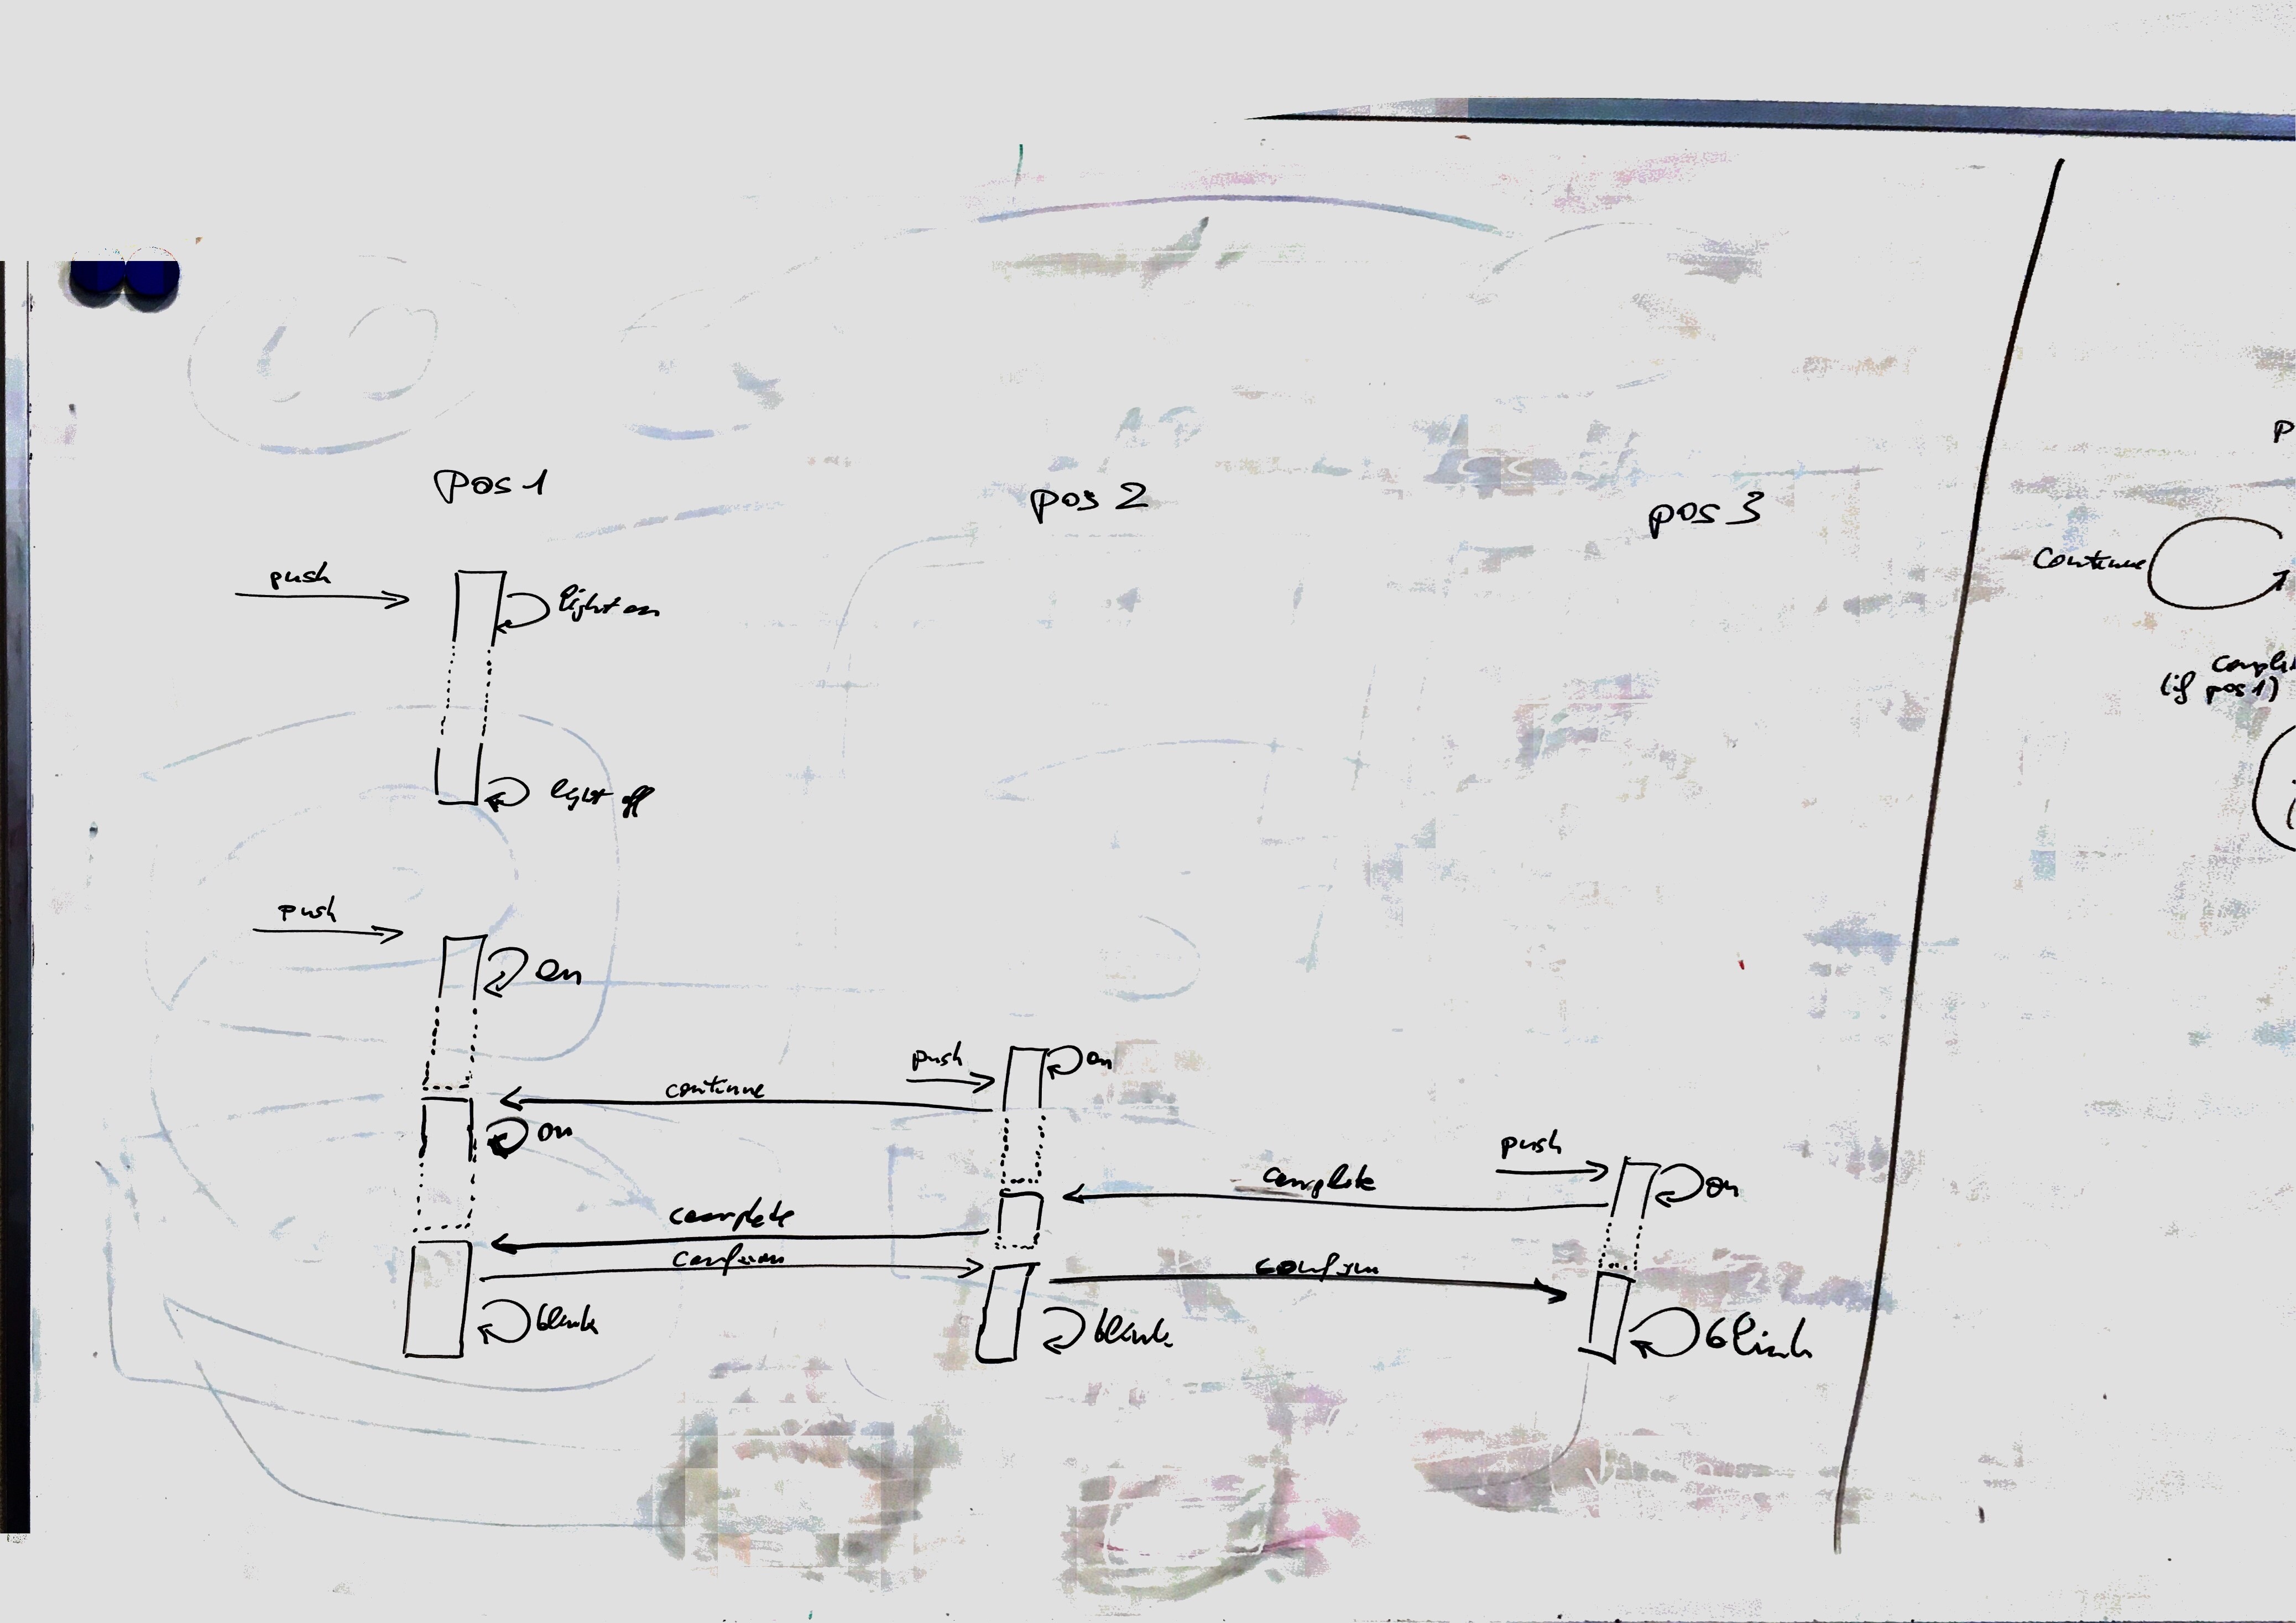 pos 1
pos 2
pos 3
push
light on
light off
push
on
push
on
continue
on
push
on
complete
complete
confirm
confirm
blink
blink
blink
continue
(if pos 1)